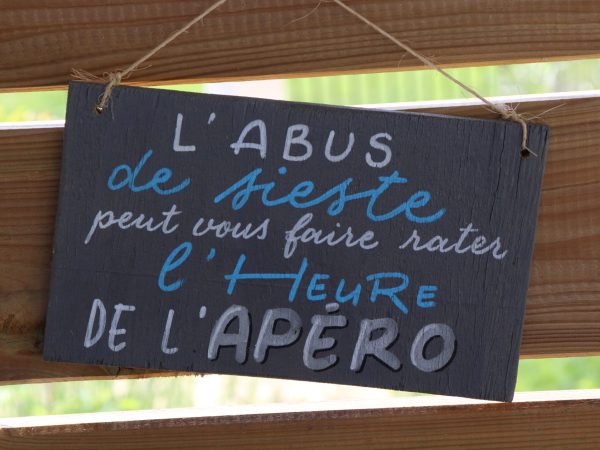 L'ABUS
de sieste
peut vous faire rater
l'HEURE
DE L'APÉRO